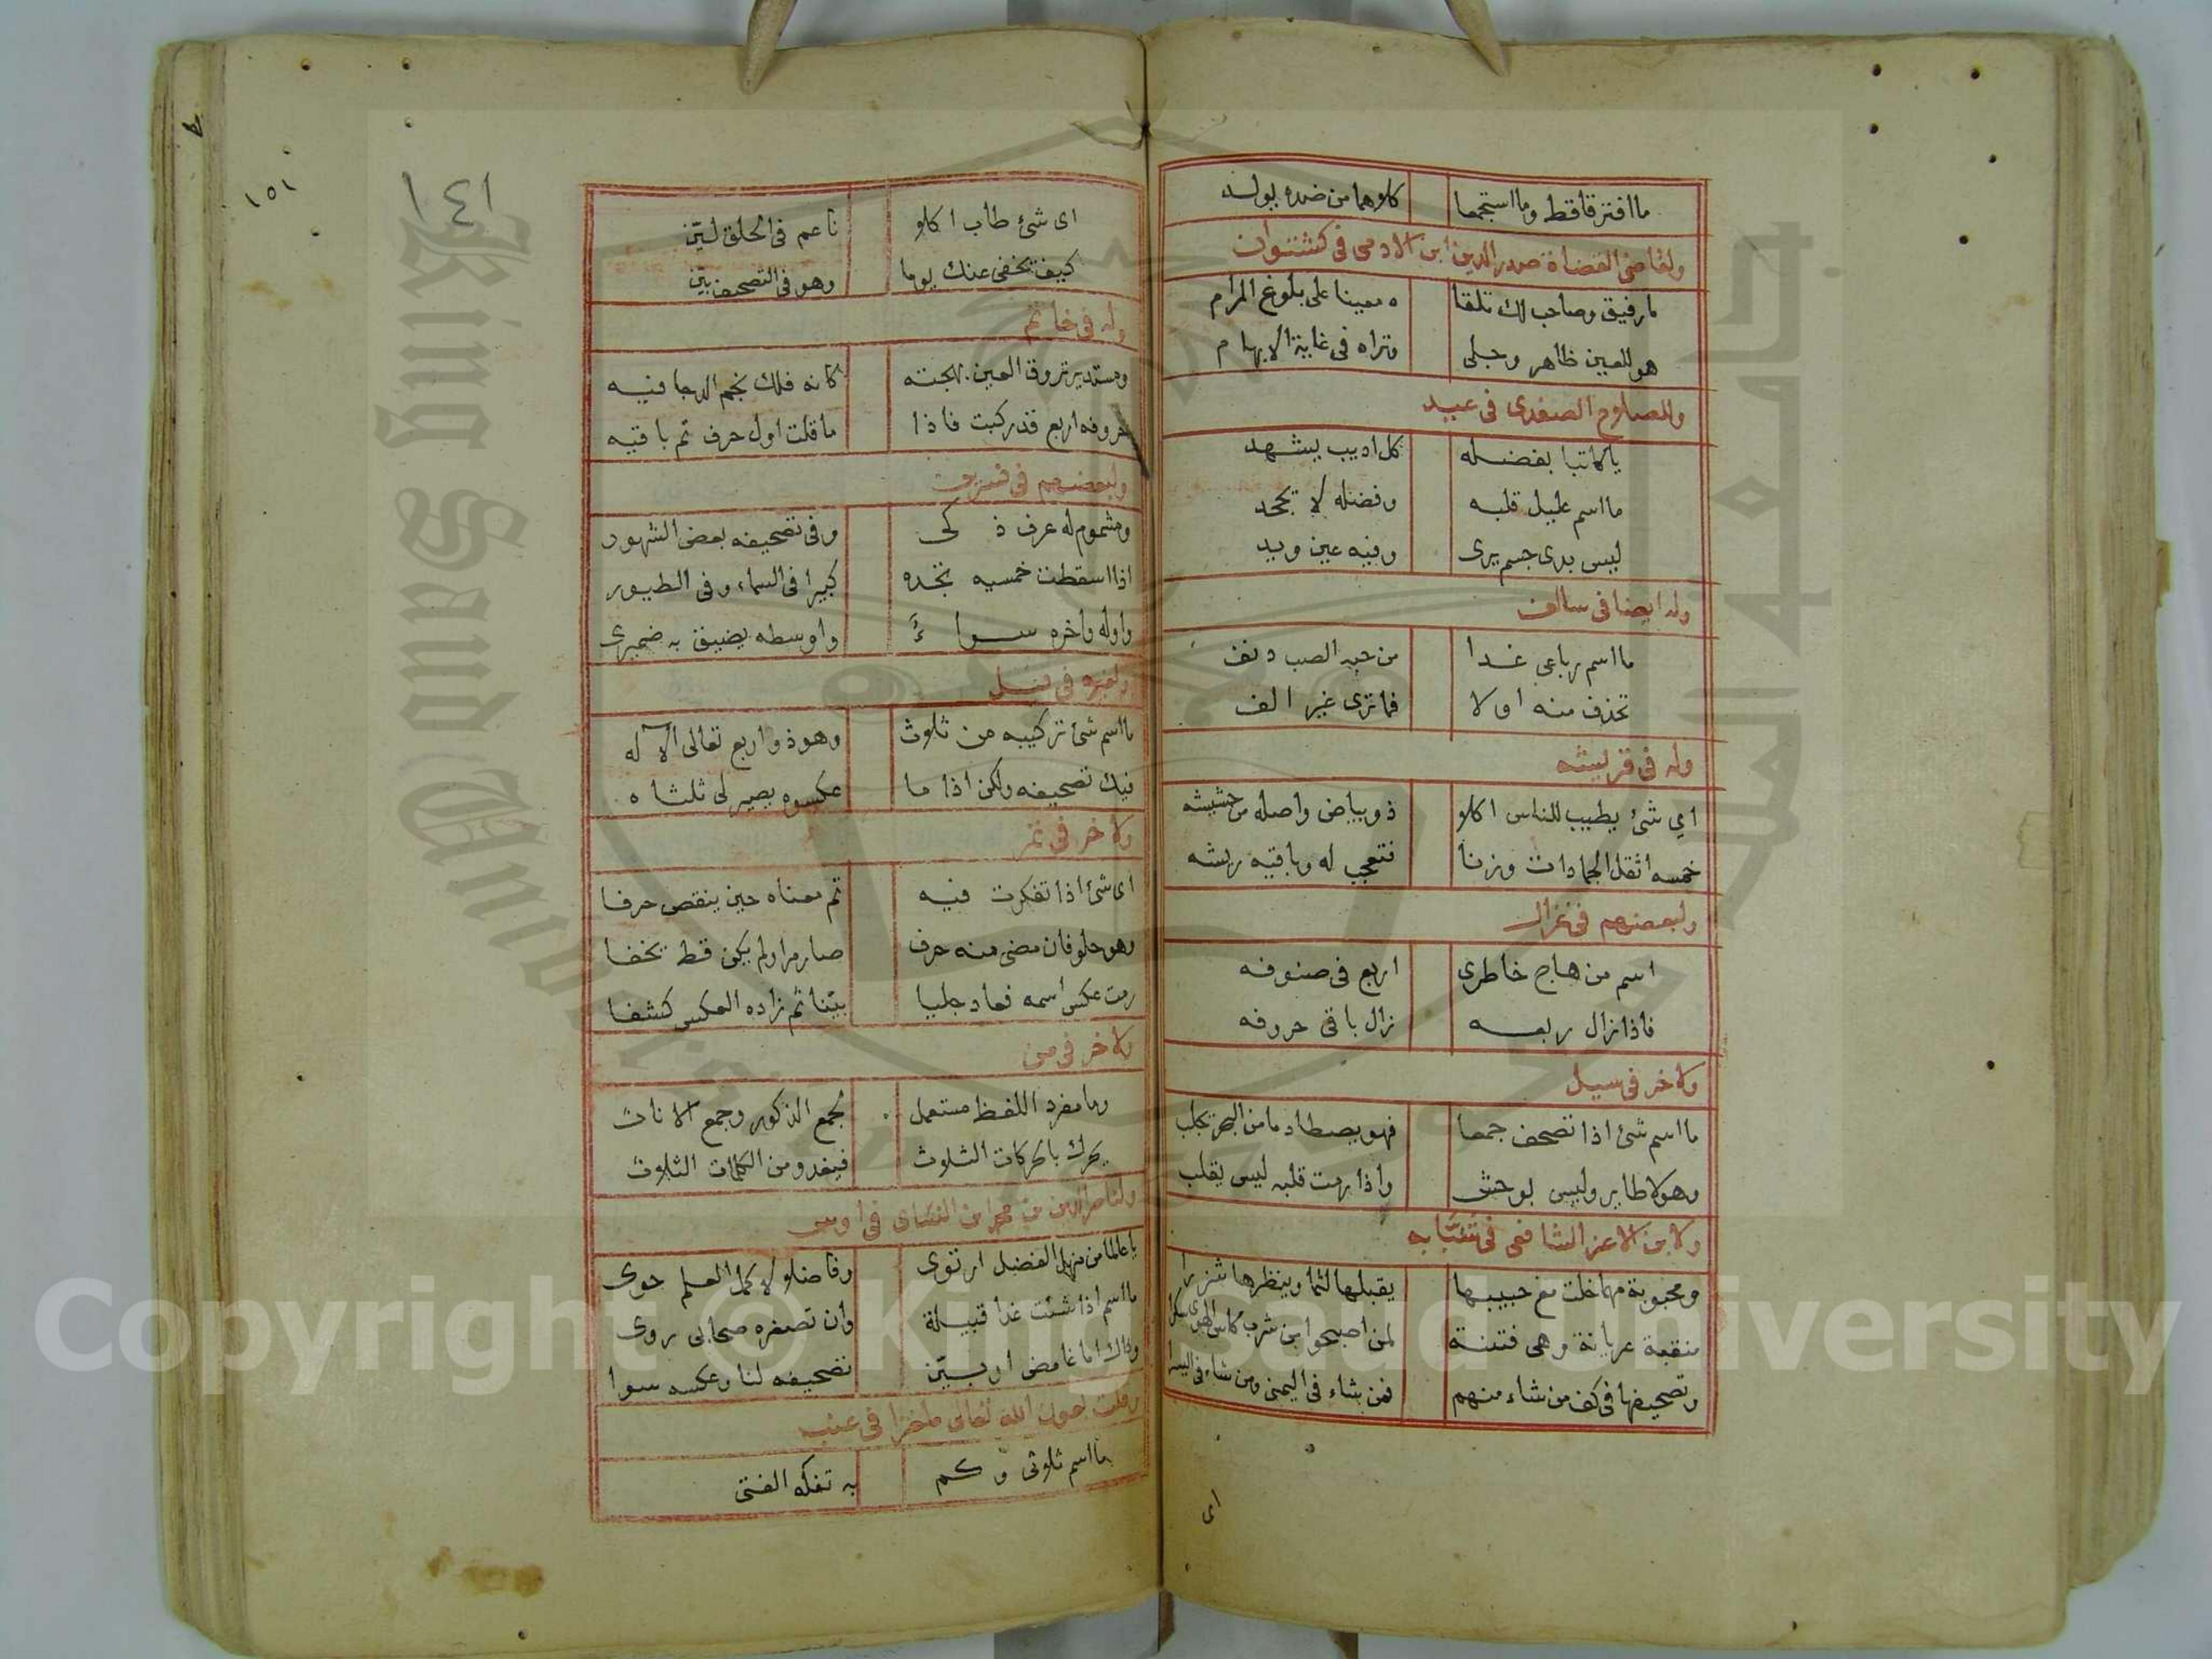 ما افترقا قط وما استجمعا كلاهما من ضده يولد
ولقاضي القضاة صدر الدين ابن الادمى فى كشتوان
ما رفيق وصاحب لك تلقا ه معينا على بلوغ المرام
هو للعين ظاهر وجلى وتراه فى غاية الابهام
وللصلاح الصفدى فى عبيد
يا كاتبا بفضله كل اديب يشهد
ما اسم عليل قلبه وفضله لا يجحد
ليس بذى جسم يرى وفيه عين ويد
وله ايضا فى سالف
ما اسم رباعى غدا من حبه الصب دنف
تحذف منه اولا فما ترى غير الف
وله فى قريشه
اى شئ يطيب للناس اكلا ذو بياض واصله من حشيشه
خمسه اثقل الجمادات وزنا فتعجب له وباقيه ريشه
ولبعضهم فى غزال
اسم من هاج خاطرى اربع فى صنوفه
فاذا زال ربعه زال باقى حروفه
ولاخر فى سيل
ما اسم شئ اذا تصحف جمعا فهو يصطاد ما من البحر تجلب
وهو لا طاير وليس بوحش واذا رمت قلبه ليس يقلب
ولابن الاعز الشافعى فى شبابه
ومحبوبة مهما خلت مع حبيبها يقبلها لثما وينظرها شزرا
منقبة عريانة وهى فتنة لمن اصبحوا من شرب كاس الهوى سكرا
وتصحيفها فى كف من شاء منهم فمن شاء فى اليمنى ومن شاء فى اليسرا
اى
١٥١
١٤١
اى شئ طاب اكلا ناعم فى الحلق ليّن
كيف تخفى عنك يوما وهو فى التصحيف بيّن
وله فى خاتم
ومستدير تروق العين بهجته كانه فلك نجم الدجا فيه
حروفه اربع قد ركبت فاذا ما قلت اول حرف تم باقيه
ولبعضهم فى نسرين
ومشموم له عرف ذكى وفى تصحيفه بعض الشهور
اذا اسقطت خمسيه تجده كبيرا فى السماء وفى الطيور
واوله واخره سواءً واوسطه يضيق به ضميرى
ولغيره فى فيل
ما اسم شئ تركيبه من ثلاث وهو ذو اربع تعالى الاله
فيك تصحيفه ولكن اذا ما عكسوه يصير لى ثلثاه
ولاخر فى تمر
اى شئ اذا تفكرت فيه تم معناه حين ينقص حرفا
وهو حلو فان مضى منه حرف صار مرا ولم يكن قط يخفا
رمت عكس اسمه فعاد جليا بيّنا ثم زاده العكس كشفا
ولاخر فى من
وما مفرد اللفظ مستعمل لجمع الذكور وجمع الاناث
يحرك بالحركات الثلاث فيغدو من الكلمات الثلاث
ولناصر الدين بن محمد ابن النشاى فى اوس
يا عالما من منهل الفضل ارتوى وفاضلا لا كمل العلم حوى
ما اسم اذا شئت غدا قبيلة وان تصغره صحابى روى
وذاك اما غامض او بيّن تصحيفه لنا وعكسه سوا
وقلت بعون الله تعالى ملغزا فى عنب
ما اسم ثلاثى وكم به تفكه الفتى